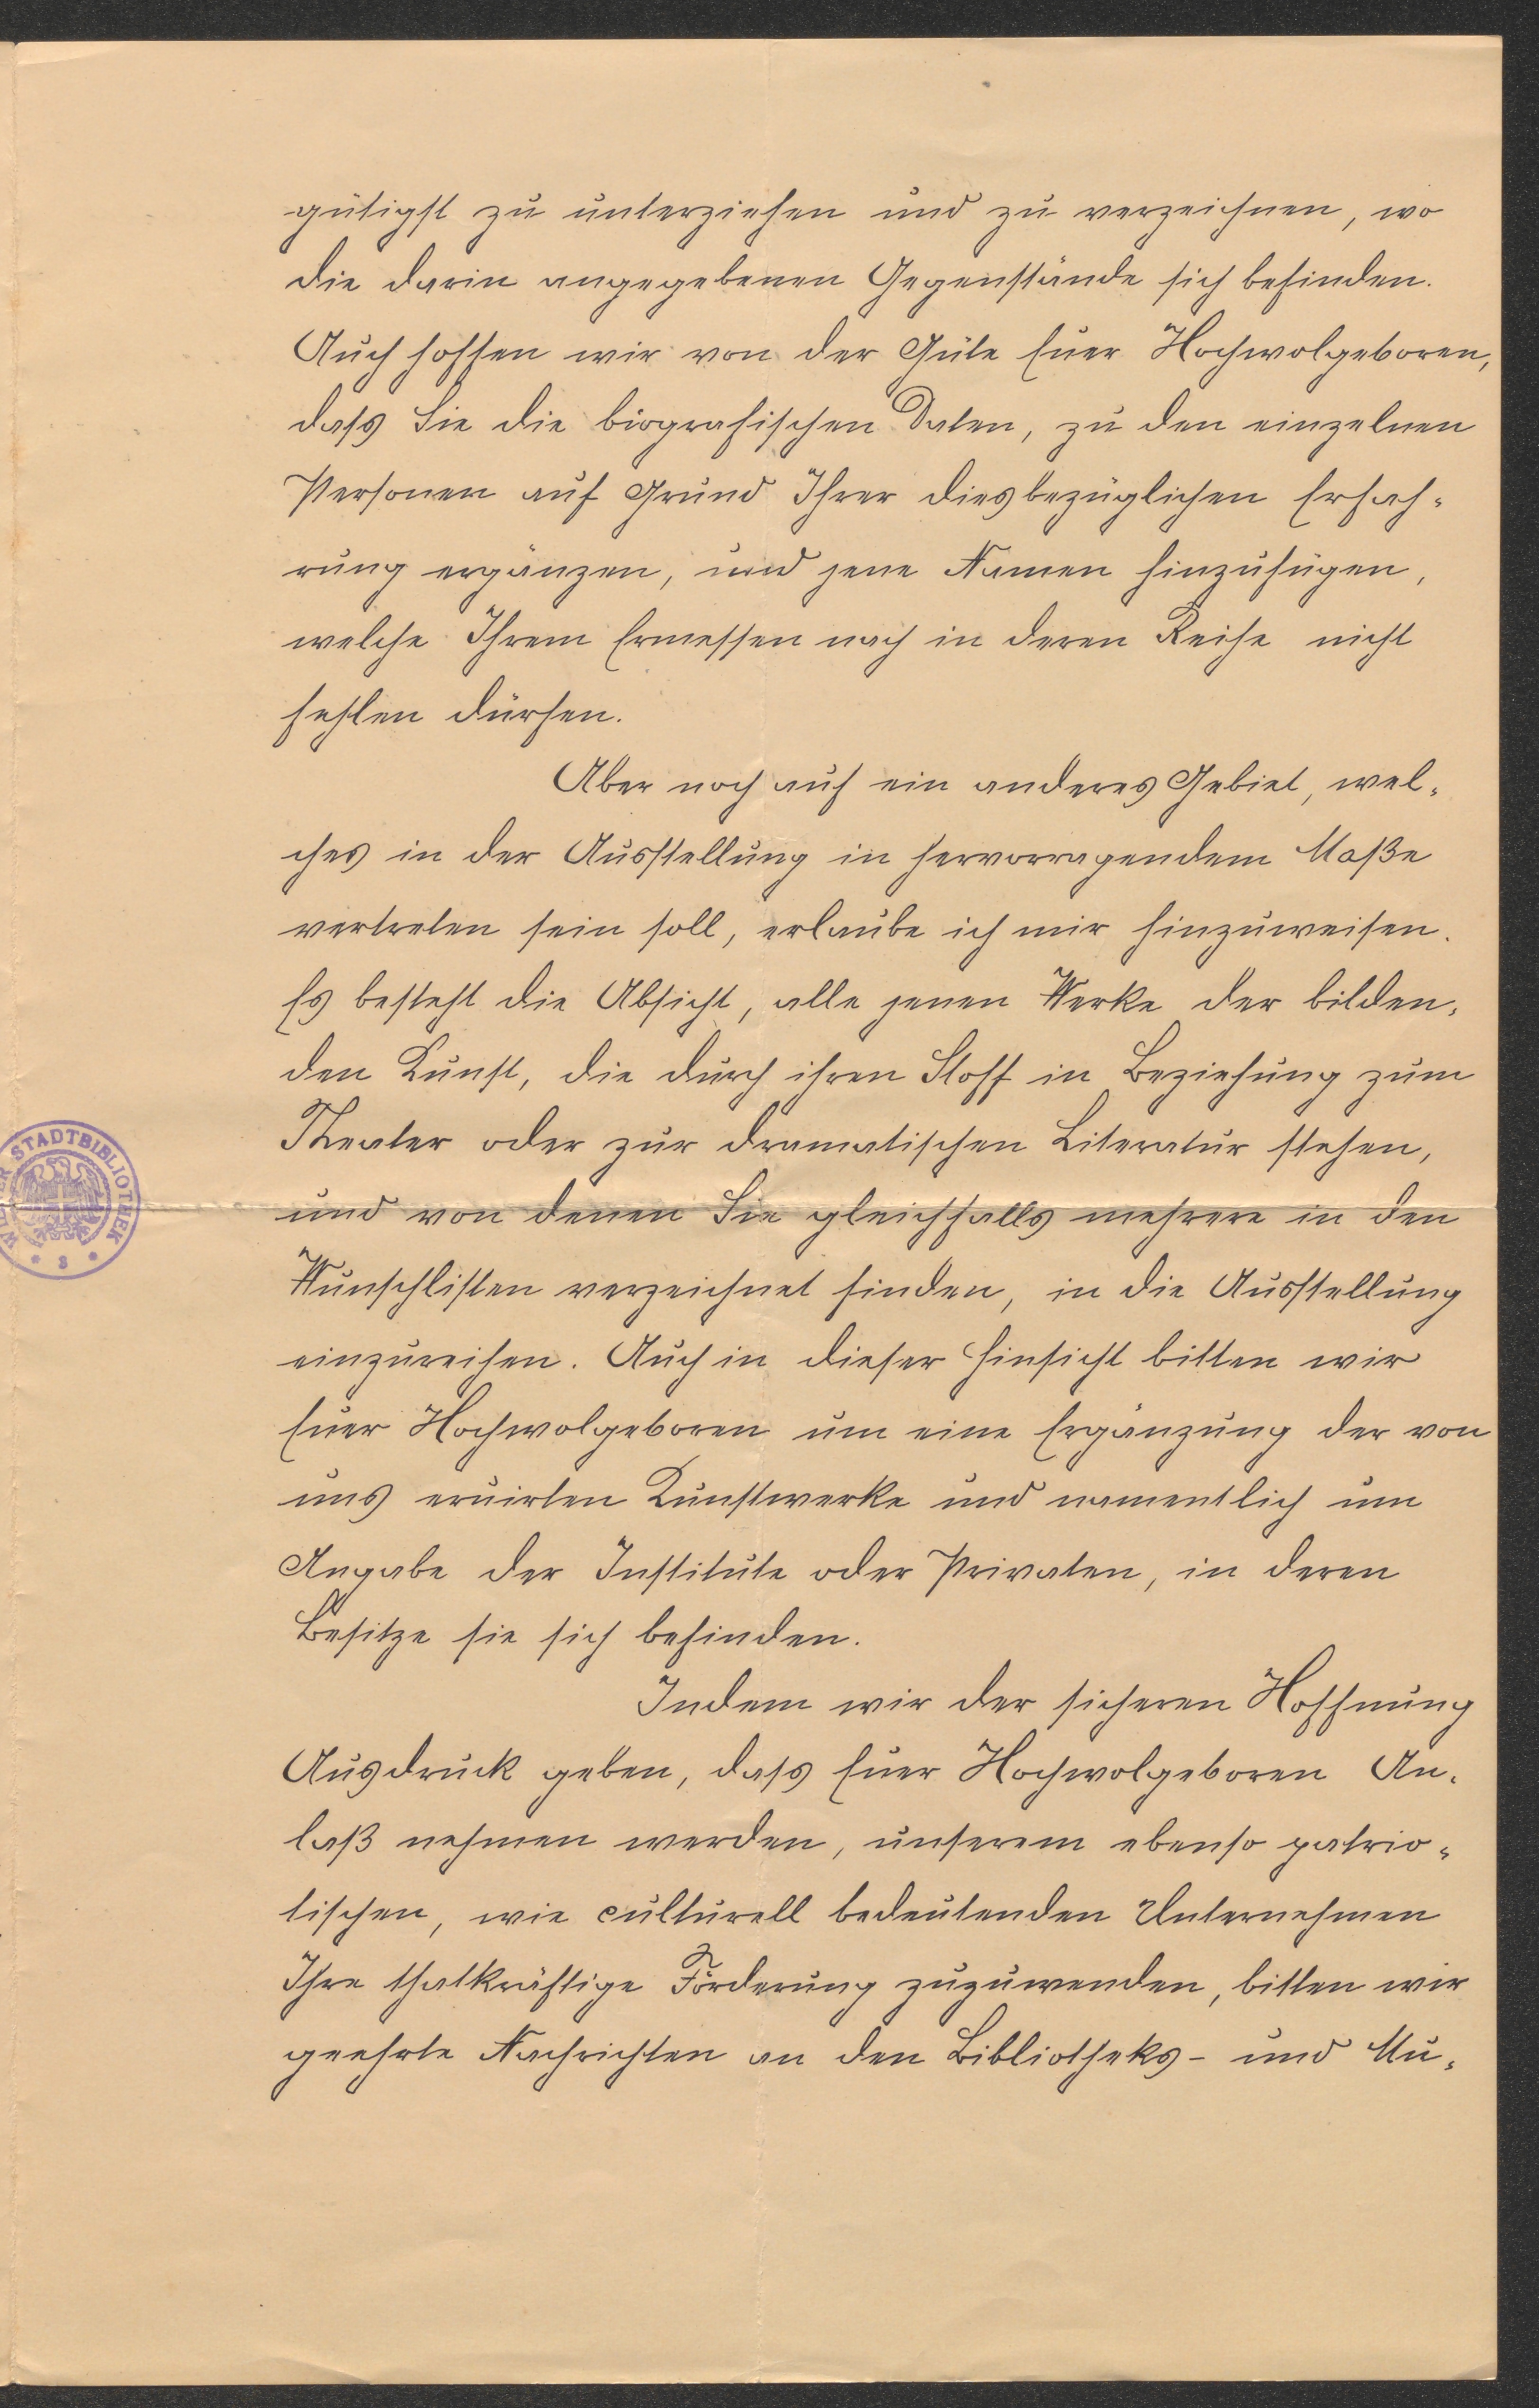 gütigst zu unterziehen und zu verzeichnen, wo
die darin angegebenen Gegenstände sich befinden.
Auch hoffen wir von der Güte Euer Hochwolgeboren,
dass Sie die biografischen Daten, zu den einzelnen
Personen auf Grund Ihrer diesbezüglichen Erfah-
rung ergänzen, und jene Namen hinzufügen,
welche Ihrem Ermessen nach in deren Reihe nicht
fehlen dürfen.
Aber noch auf ein anderes Gebiet, wel-
ches in der Ausstellung in hervorragendem Maße
vertreten sein soll, erlaube ich mir hinzuweisen.
Es besteht die Absicht, alle jenen Werke der bilden-
den Kunst, die durch ihren Stoff in Beziehung zum
Theater oder zur dramatischen Literatur stehen,
und von denen Sie gleichfalls mehrere in den
Wunschlisten verzeichnet finden, in die Ausstellung
einzureihen. Auch in dieser Hinsicht bitten wir
Euer Hochwolgeboren um eine Ergänzung der von
uns eruirten Kunstwerke und namentlich um
Angabe der Institute oder Privaten, in deren
Besitze sie sich befinden.
Indem wir der sicheren Hoffnung
Ausdruck geben, dass Euer Hochwolgeboren An-
laß nehmen werden, unserem ebenso patrio-
tischen, wie culturell bedeutenden Unternehmen
Ihre thatkräftige Förderung zuzuwenden, bitten wir
geehrte Nachrichten an den Bibliotheks- und Mu-
STADTBIBLIOTHEK